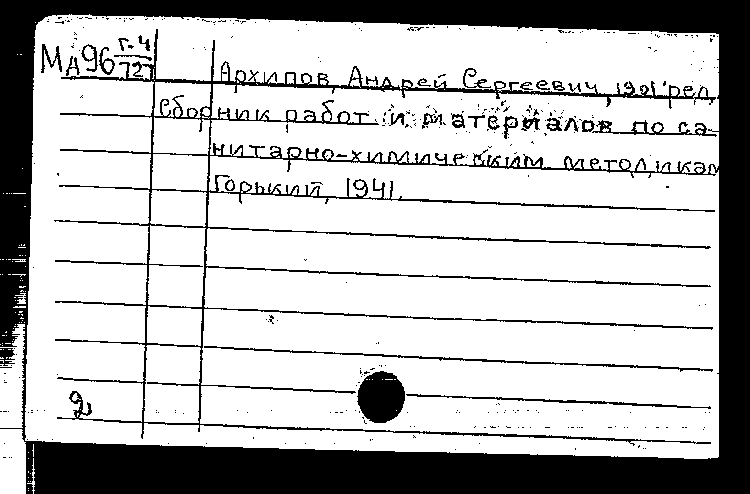 МА96 Г-4/727
Архипов, Андрей Сергеевич, 1901 ред.
Сборник работ и материалов по са-
нитарно-химическим методикам
Горький, 1941.